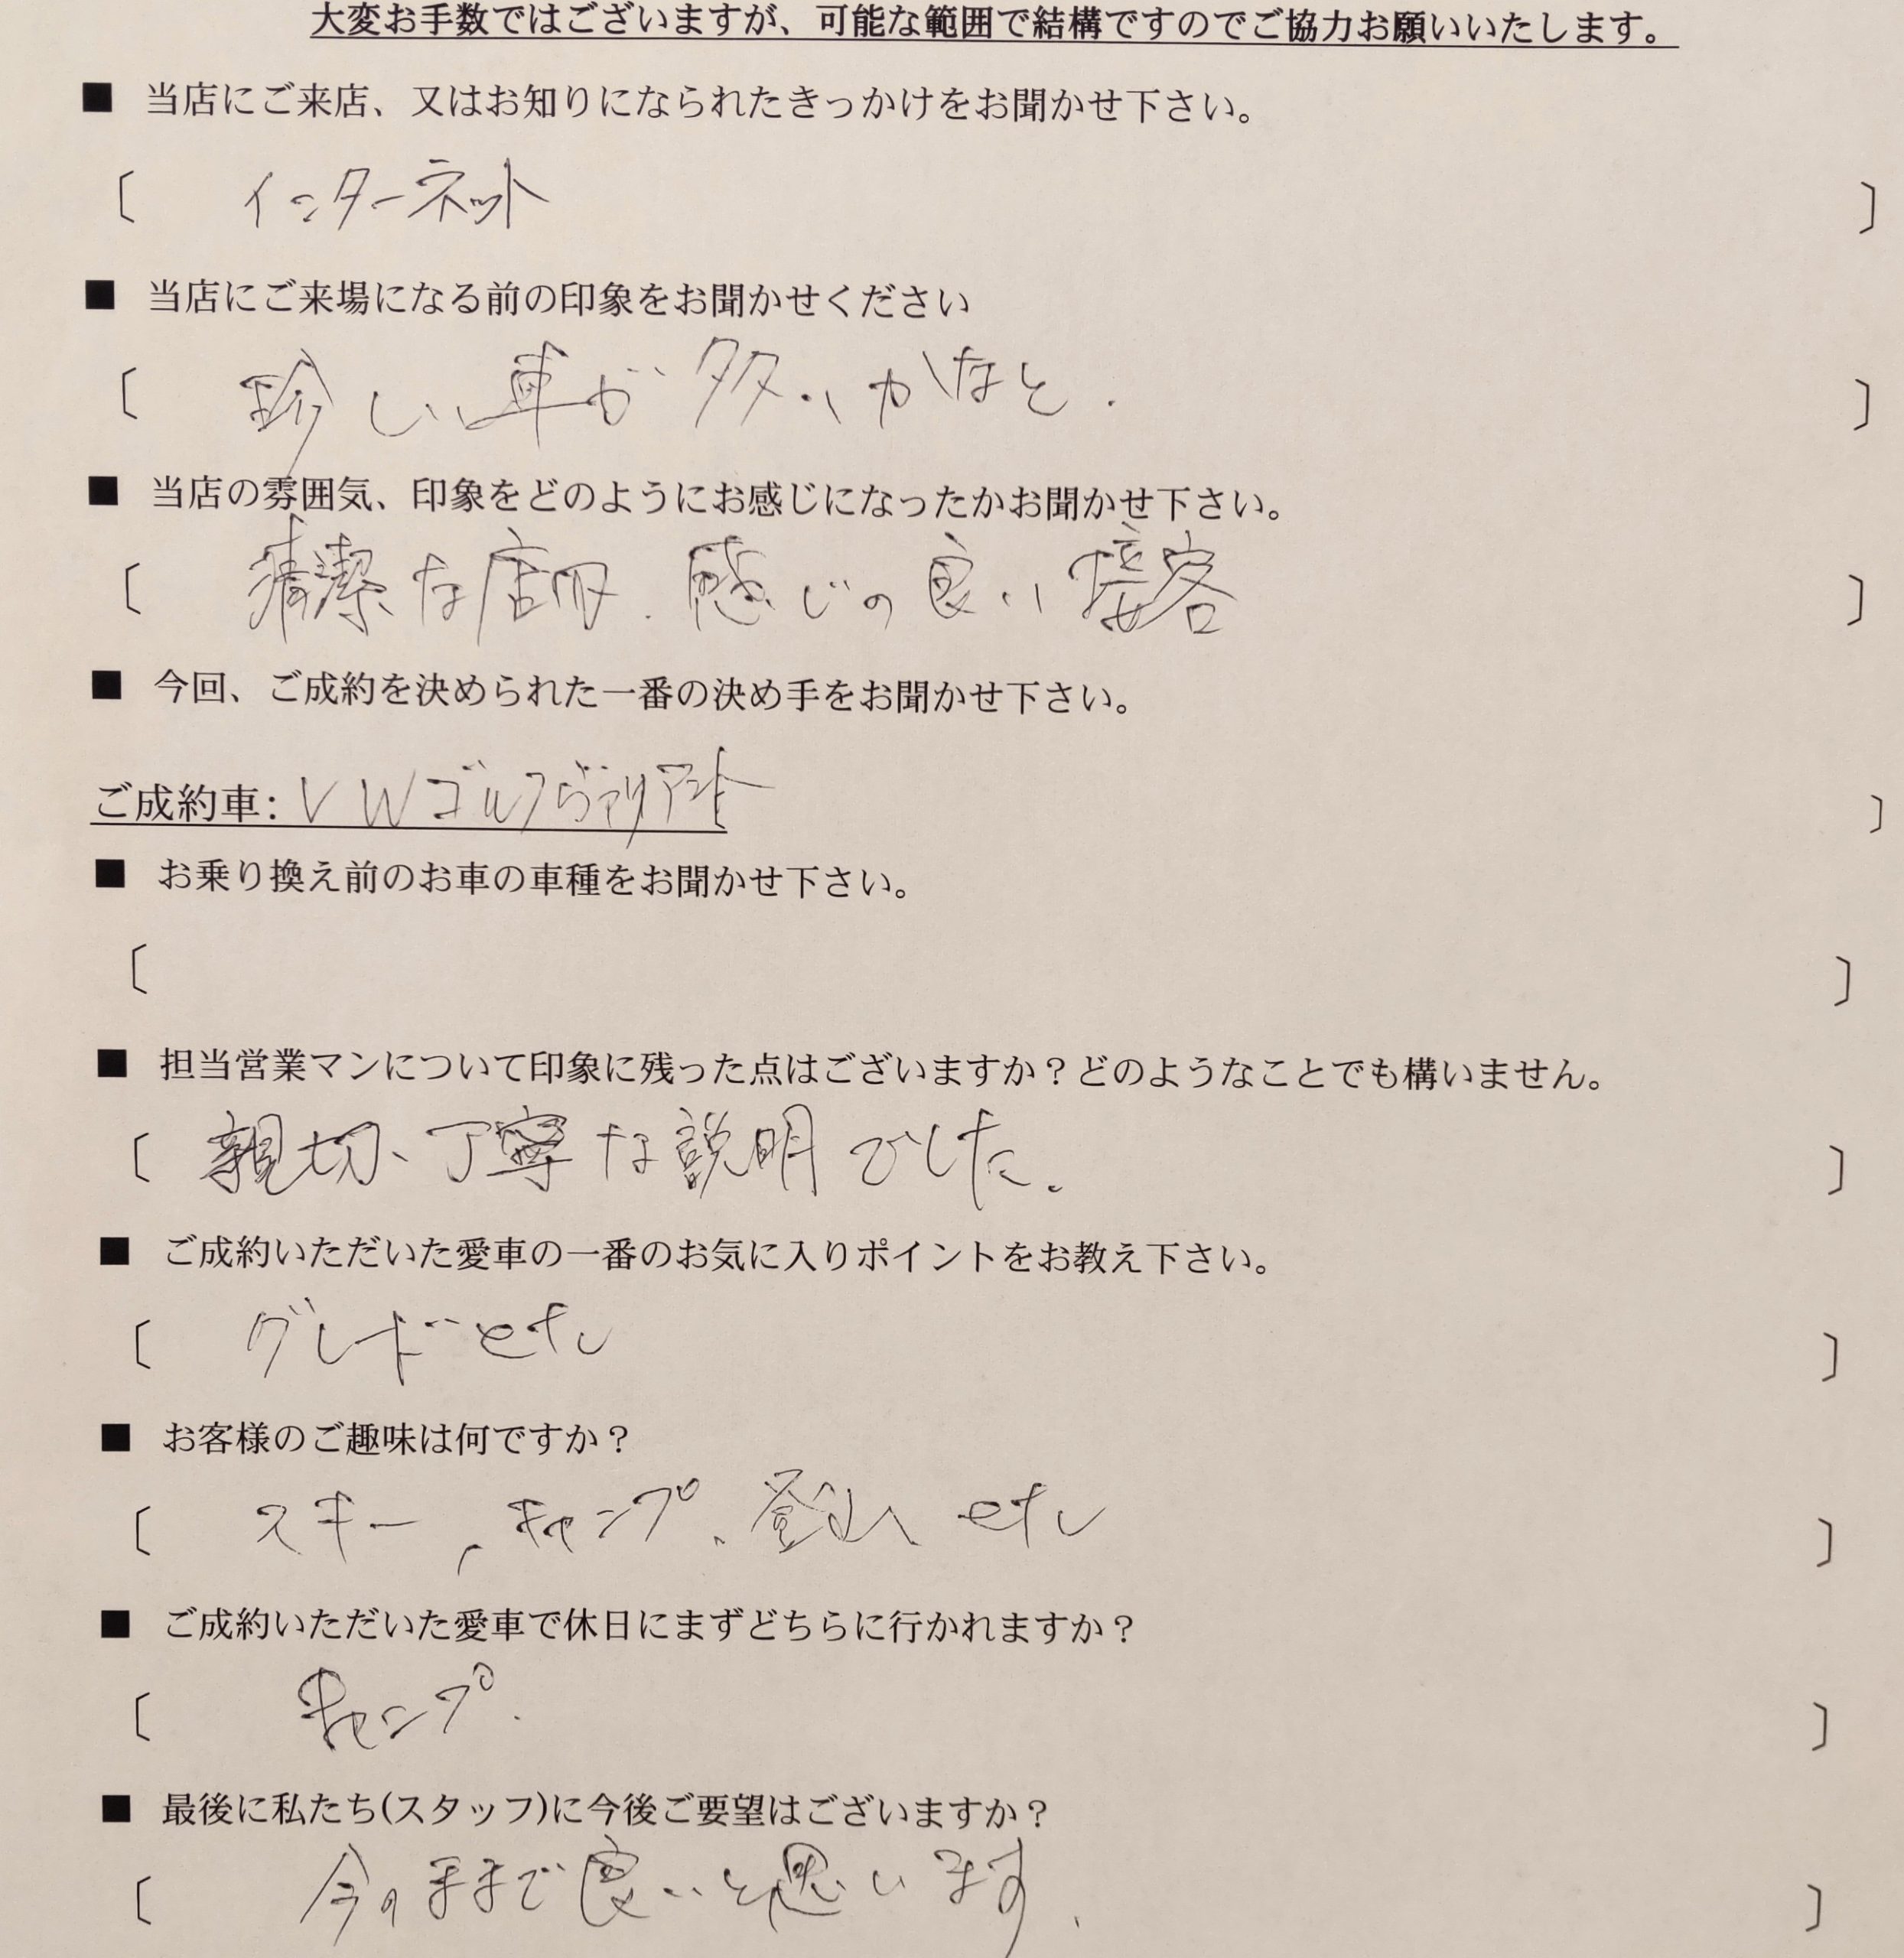 大変お手数ではございますが、可能な範囲で結構ですのでご協力お願いいたします。
■ 当店にご来店、又はお知りになられたきっかけをお聞かせ下さい。
〔 インターネット 〕
■ 当店にご来場になる前の印象をお聞かせください
〔 珍しい車が多いかなと. 〕
■ 当店の雰囲気、印象をどのようにお感じになったかお聞かせ下さい。
〔 清潔な店内. 感じの良い接客 〕
■ 今回、ご成約を決められた一番の決め手をお聞かせ下さい。
ご成約車: VWゴルフヴァリアント 〕
■ お乗り換え前のお車の車種をお聞かせ下さい。
〔 〕
■ 担当営業マンについて印象に残った点はございますか？どのようなことでも構いません。
〔 親切、丁寧な説明でした. 〕
■ ご成約いただいた愛車の一番のお気に入りポイントをお教え下さい。
〔 グレード etc 〕
■ お客様のご趣味は何ですか？
〔 スキー, キャンプ、登山 etc 〕
■ ご成約いただいた愛車で休日にまずどちらに行かれますか？
〔 キャンプ. 〕
■ 最後に私たち(スタッフ)に今後ご要望はございますか？
〔 今のままで良いと思います. 〕